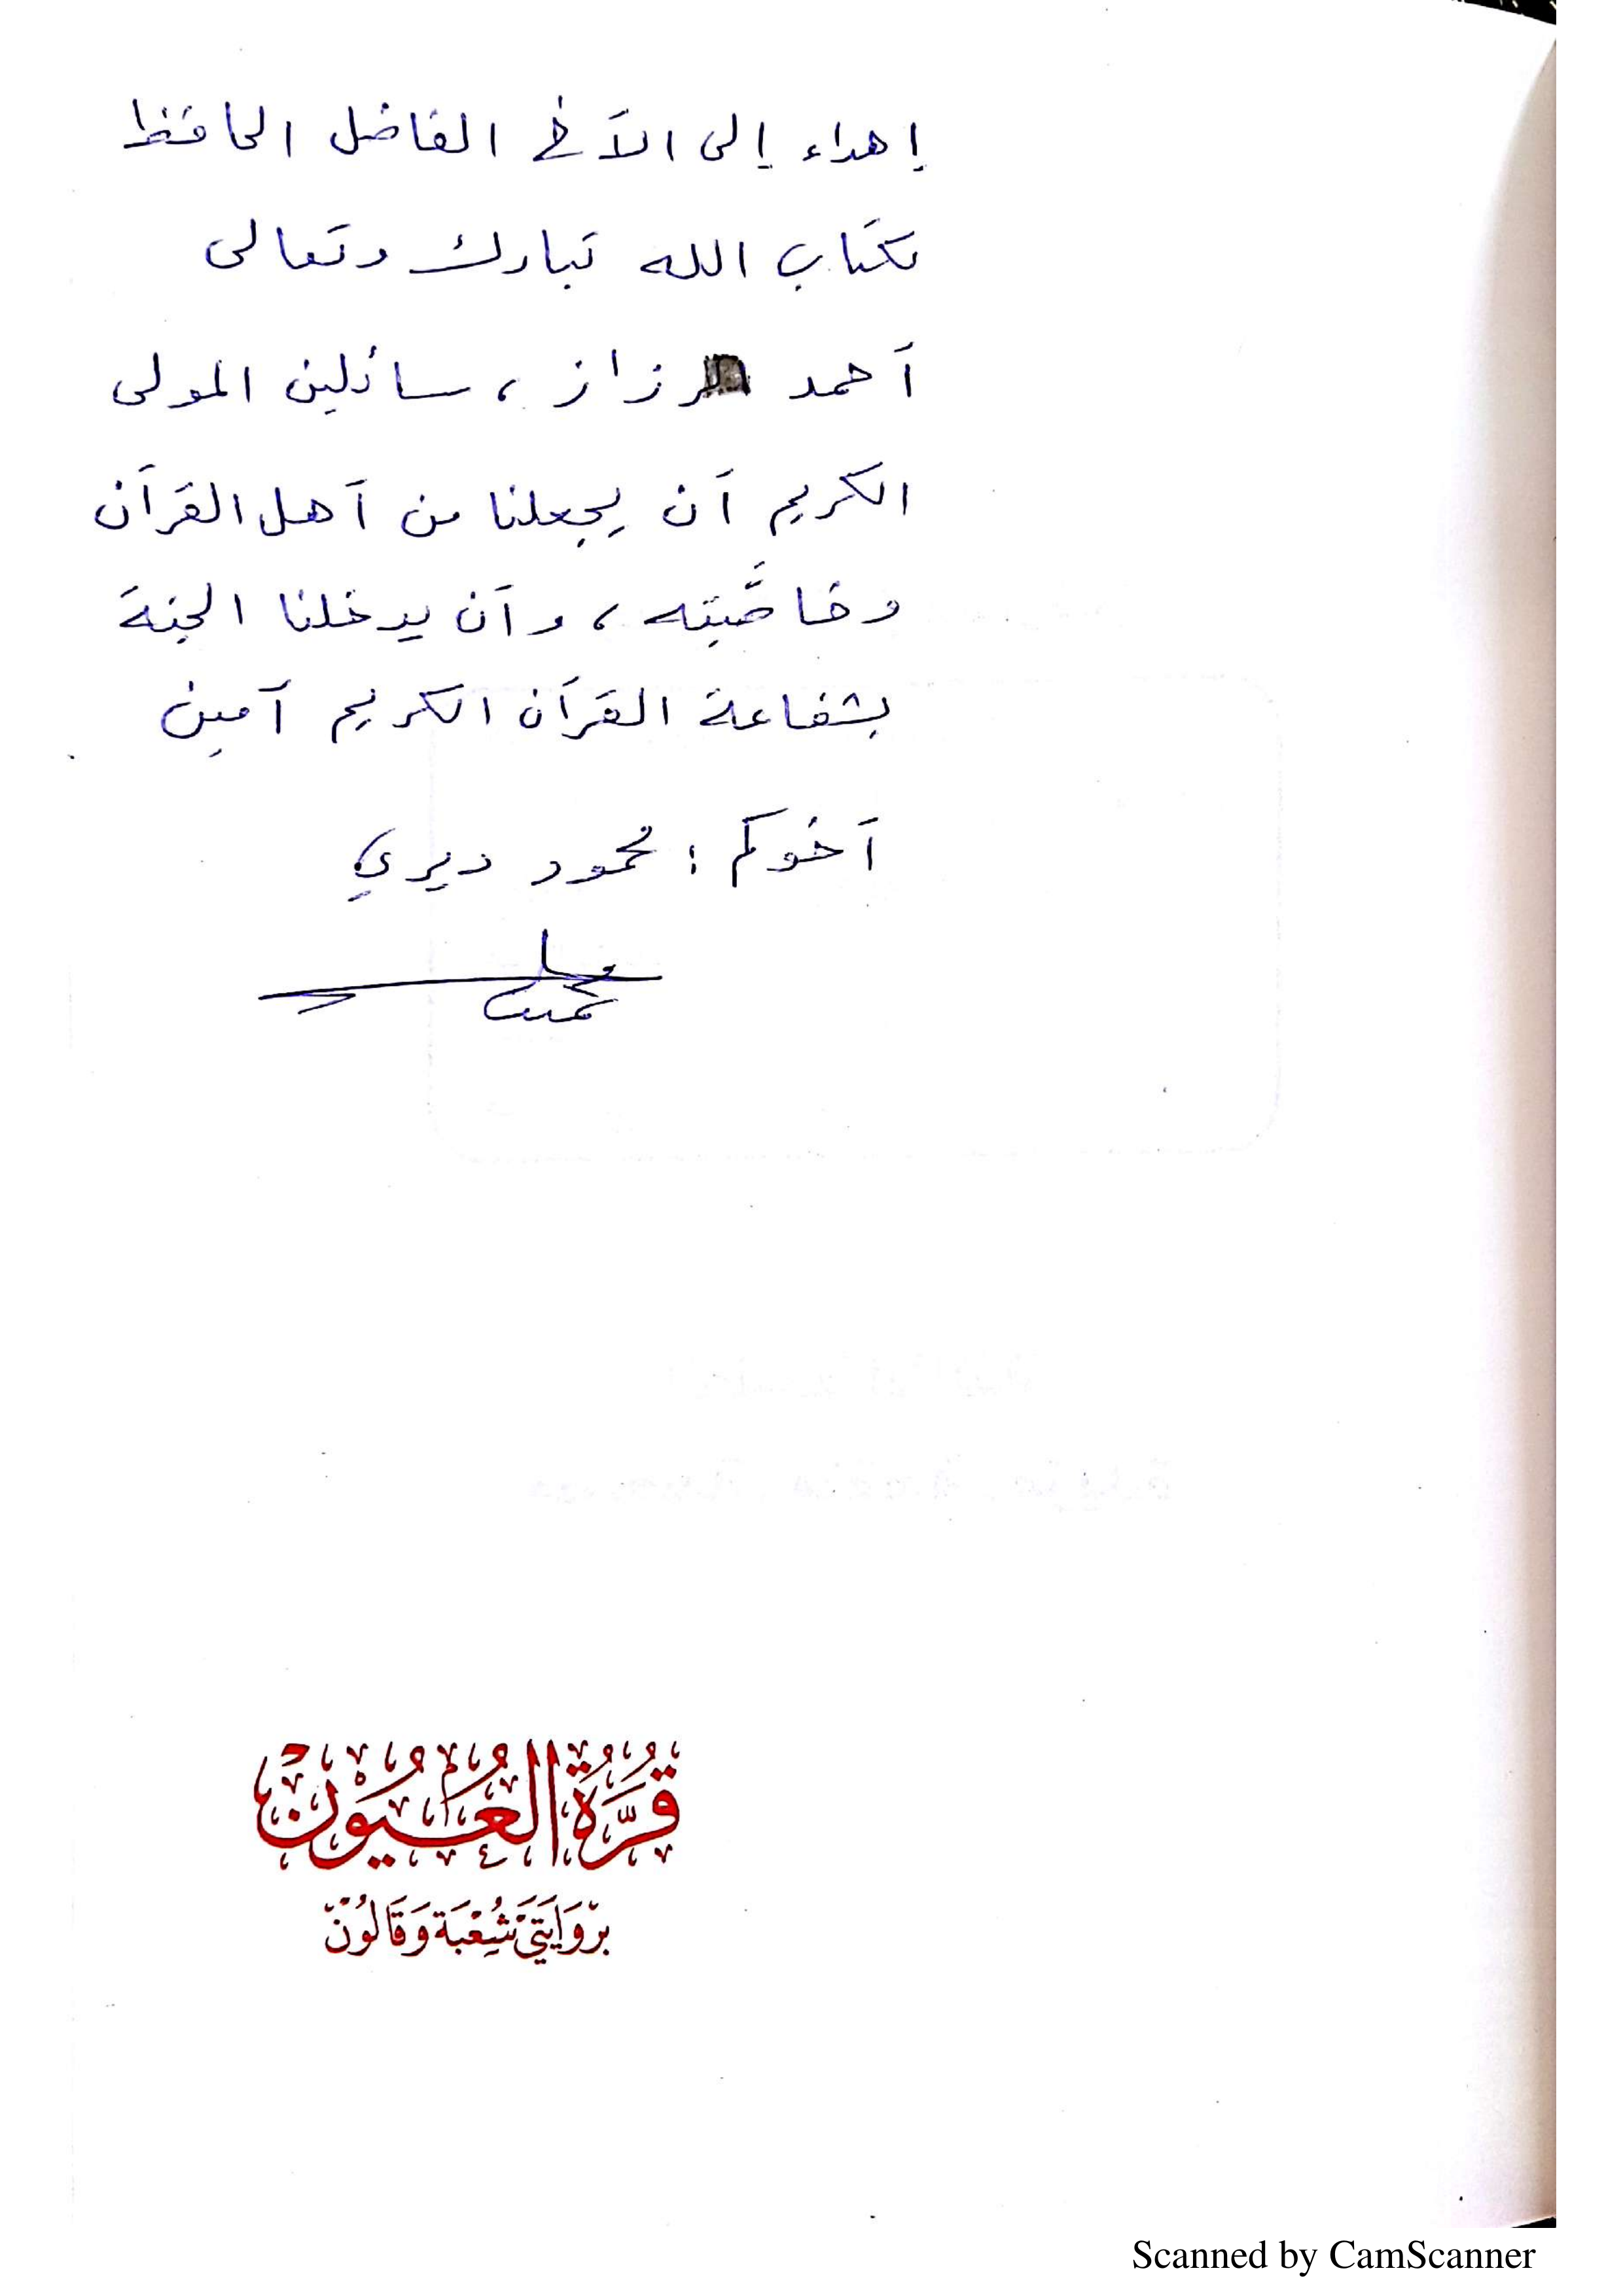 إهداء إلى الأخ الفاضل الحافظ
لكتاب الله تبارك وتعالى
أحمد رزاز، سائلين المولى
الكريم أن يجعلنا من أهل القرآن
وخاصَّته، وأن يدخلنا الجنة
بشفاعة القرآن الكريم آمين
أخوكم: محمود ديري
قُرَّةُ العُيُونْ
بِرِوَايَتَيْ شُعْبَة وَقَالُونْ
Scanned by CamScanner